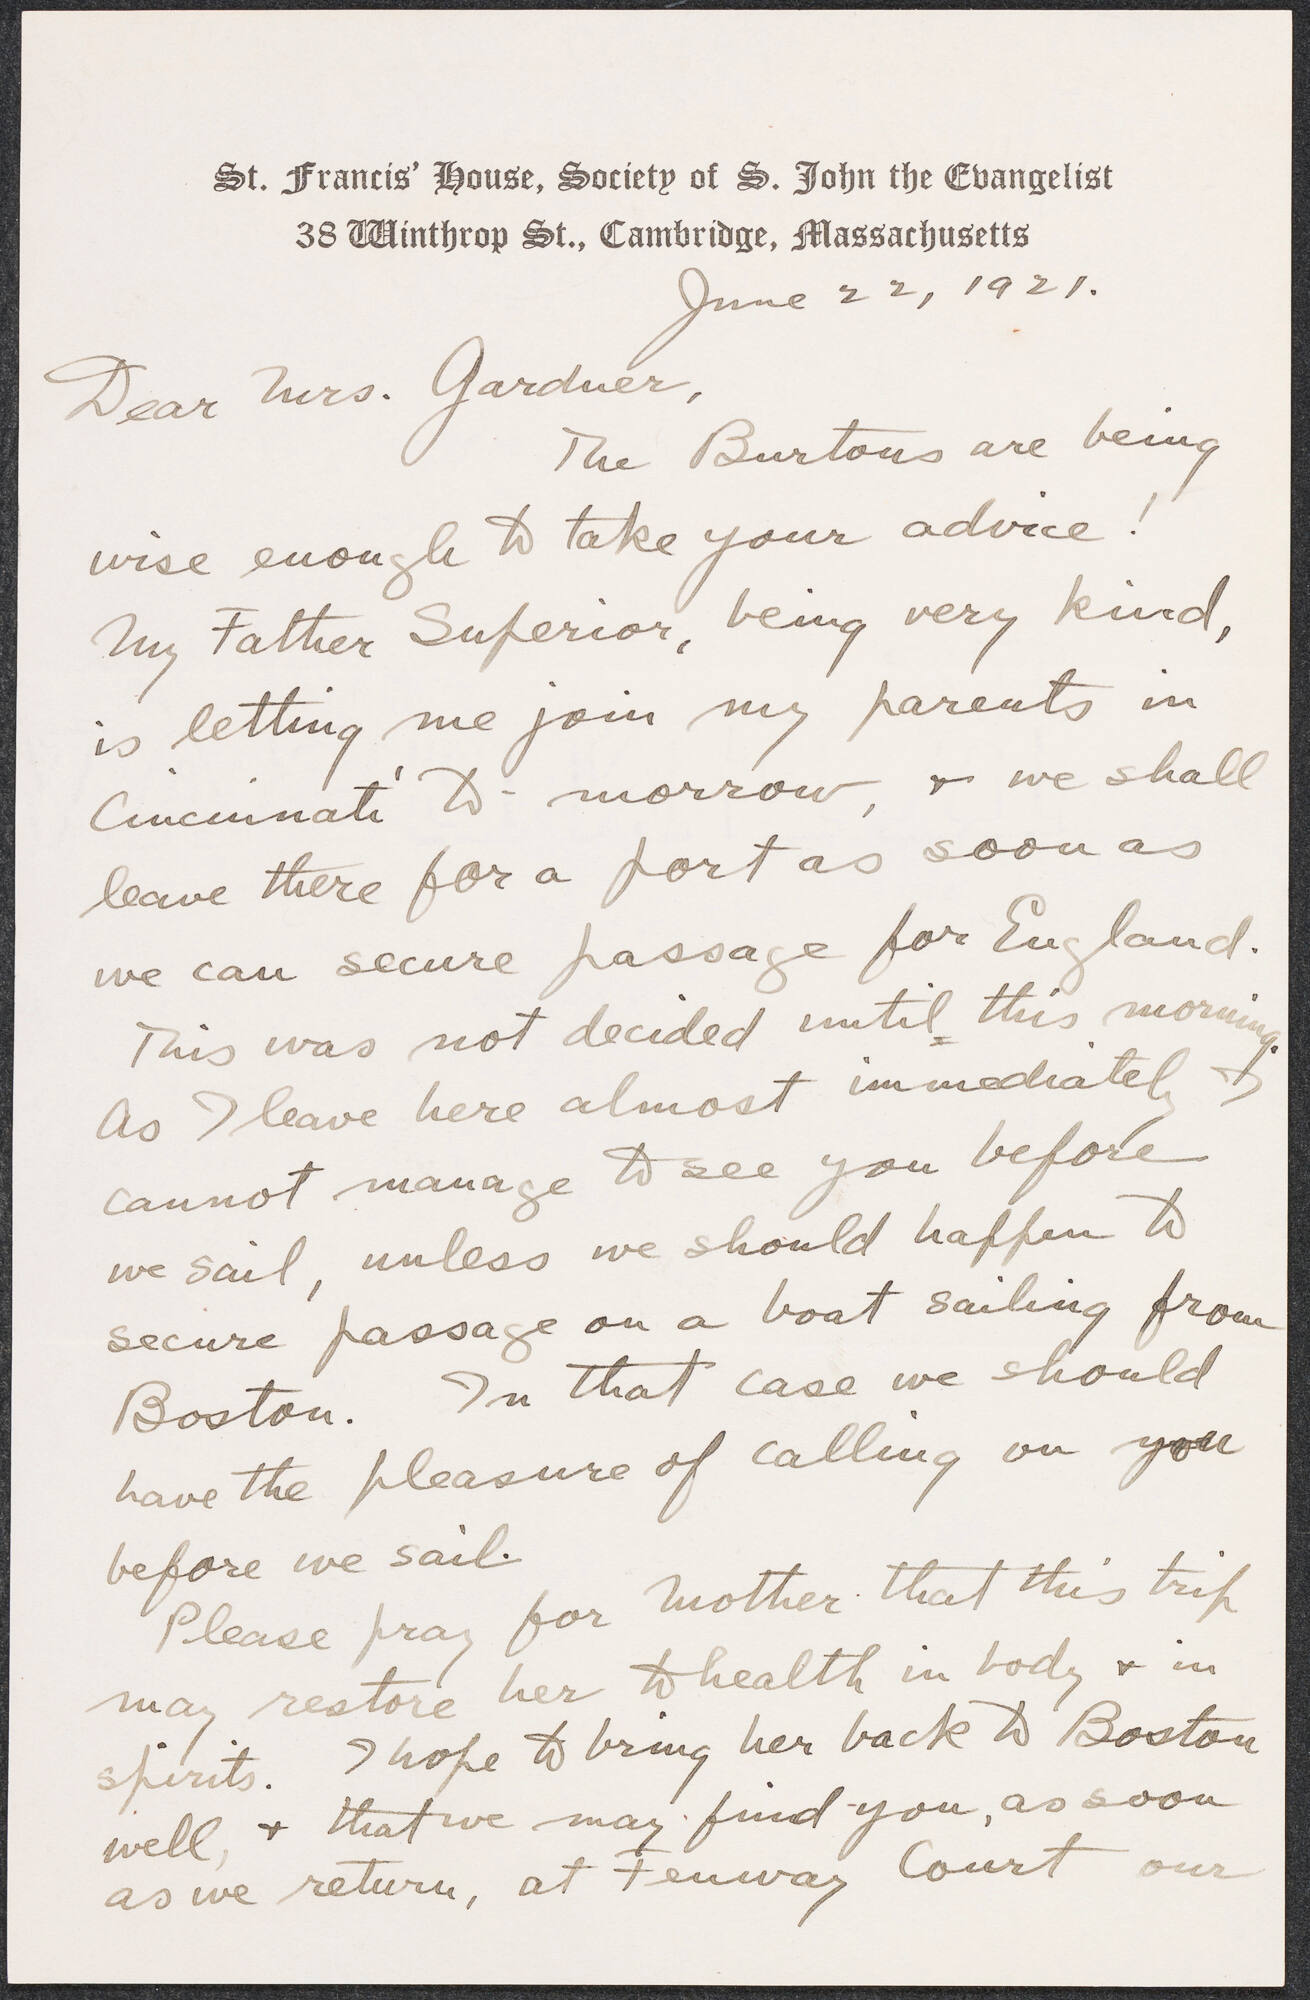 St. Francis' House, Society of S. John the Evangelist
38 Winthrop St., Cambridge, Massachusetts
June 22, 1921.
Dear Mrs. Gardner,
The Burtons are being
wise enough to take your advice!
My Father Superior, being very kind,
is letting me join my parents in
Cincinnati to-morrow, & we shall
leave there for a port as soon as
we can secure passage for England.
This was not decided until this morning.
As I leave here almost immediately I
cannot manage to see you before
we sail, unless we should happen to
secure passage on a boat sailing from
Boston. In that case we should
have the pleasure of calling on you
before we sail.
Please pray for Mother that this trip
may restore her to health in body & in
spirits. I hope to bring her back to Boston
well, & that we may find you, as soon
as we return, at Fenway Court our